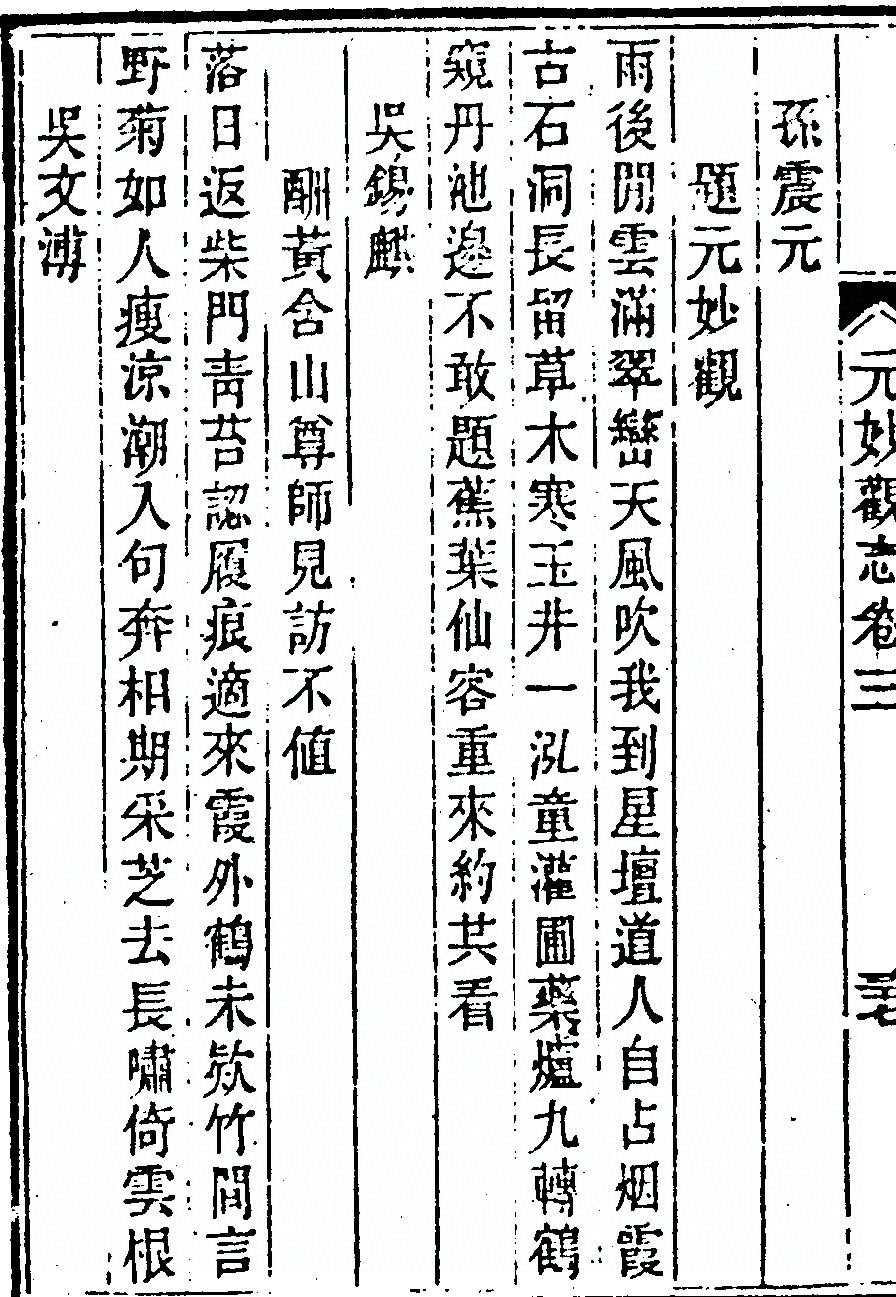 元妙觀志卷三
孫震元
題元妙觀
雨後閒雲滿翠巒天風吹我到星壇道人自占烟霞
古石洞長留草木寒玉井一泓童灌圃藥爐九轉鶴
窺丹池邊不敢題蕉葉仙容重來約共看
吳錫麒
酬黃含山尊師見訪不值
落日返柴門靑苔認履痕適來霞外鶴未欵竹間言
野菊如人瘦涼潮入句奔相期采芝去長嘯倚雲根
吳文溥